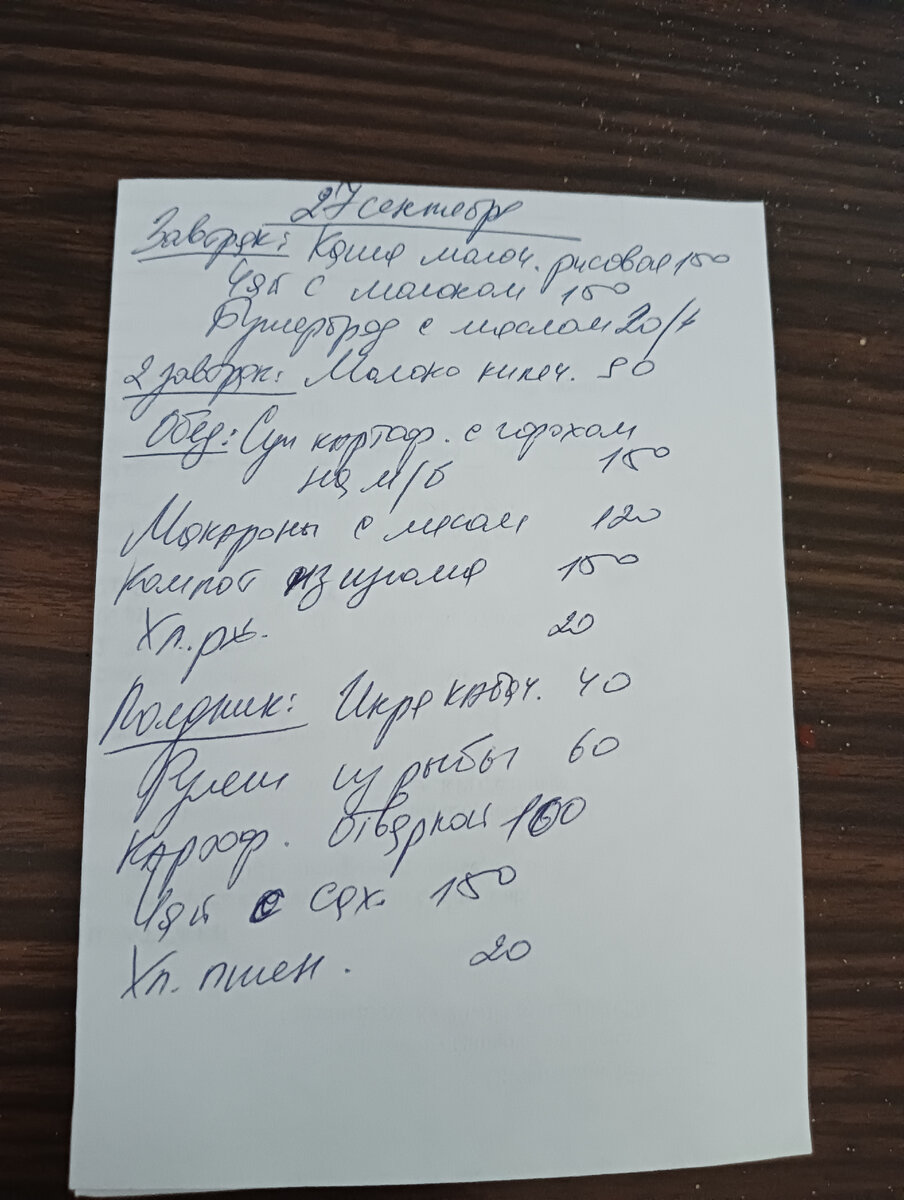 27 сентебре
Завтрак: Каша молоч. рисовая 150
Чай с молоком 150
Бутерброд с маслом 20/
2 завтрак: Молоко кипяч. 90
Обед: Суп картоф. с горохом
на м/б 150
Макароны с мясом 120
Компот из изюма 150
Хл. рж. 20
Полдник: Икра кабач. 40
Рулет из рыбы 60
Картоф. отварной 100
Чай с сах. 150
Хл. пшен. 20